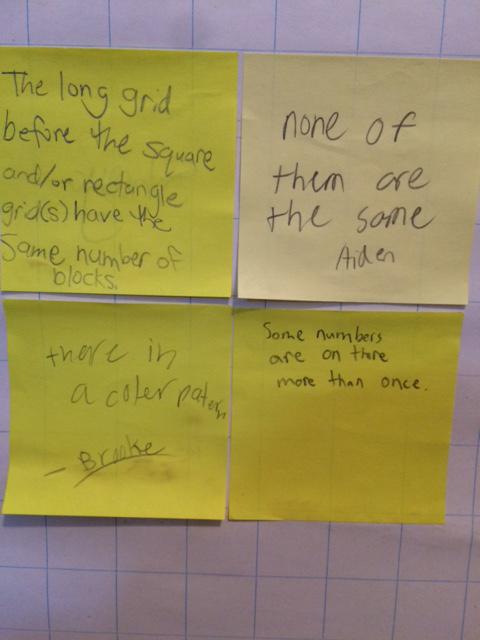 The long grid
before the square
and/or rectangle
grid(s) have the
same number of
blocks.
none of
them are
the same
Aiden
there in
a coler patern
- Brooke
Some numbers
are on there
more than once.